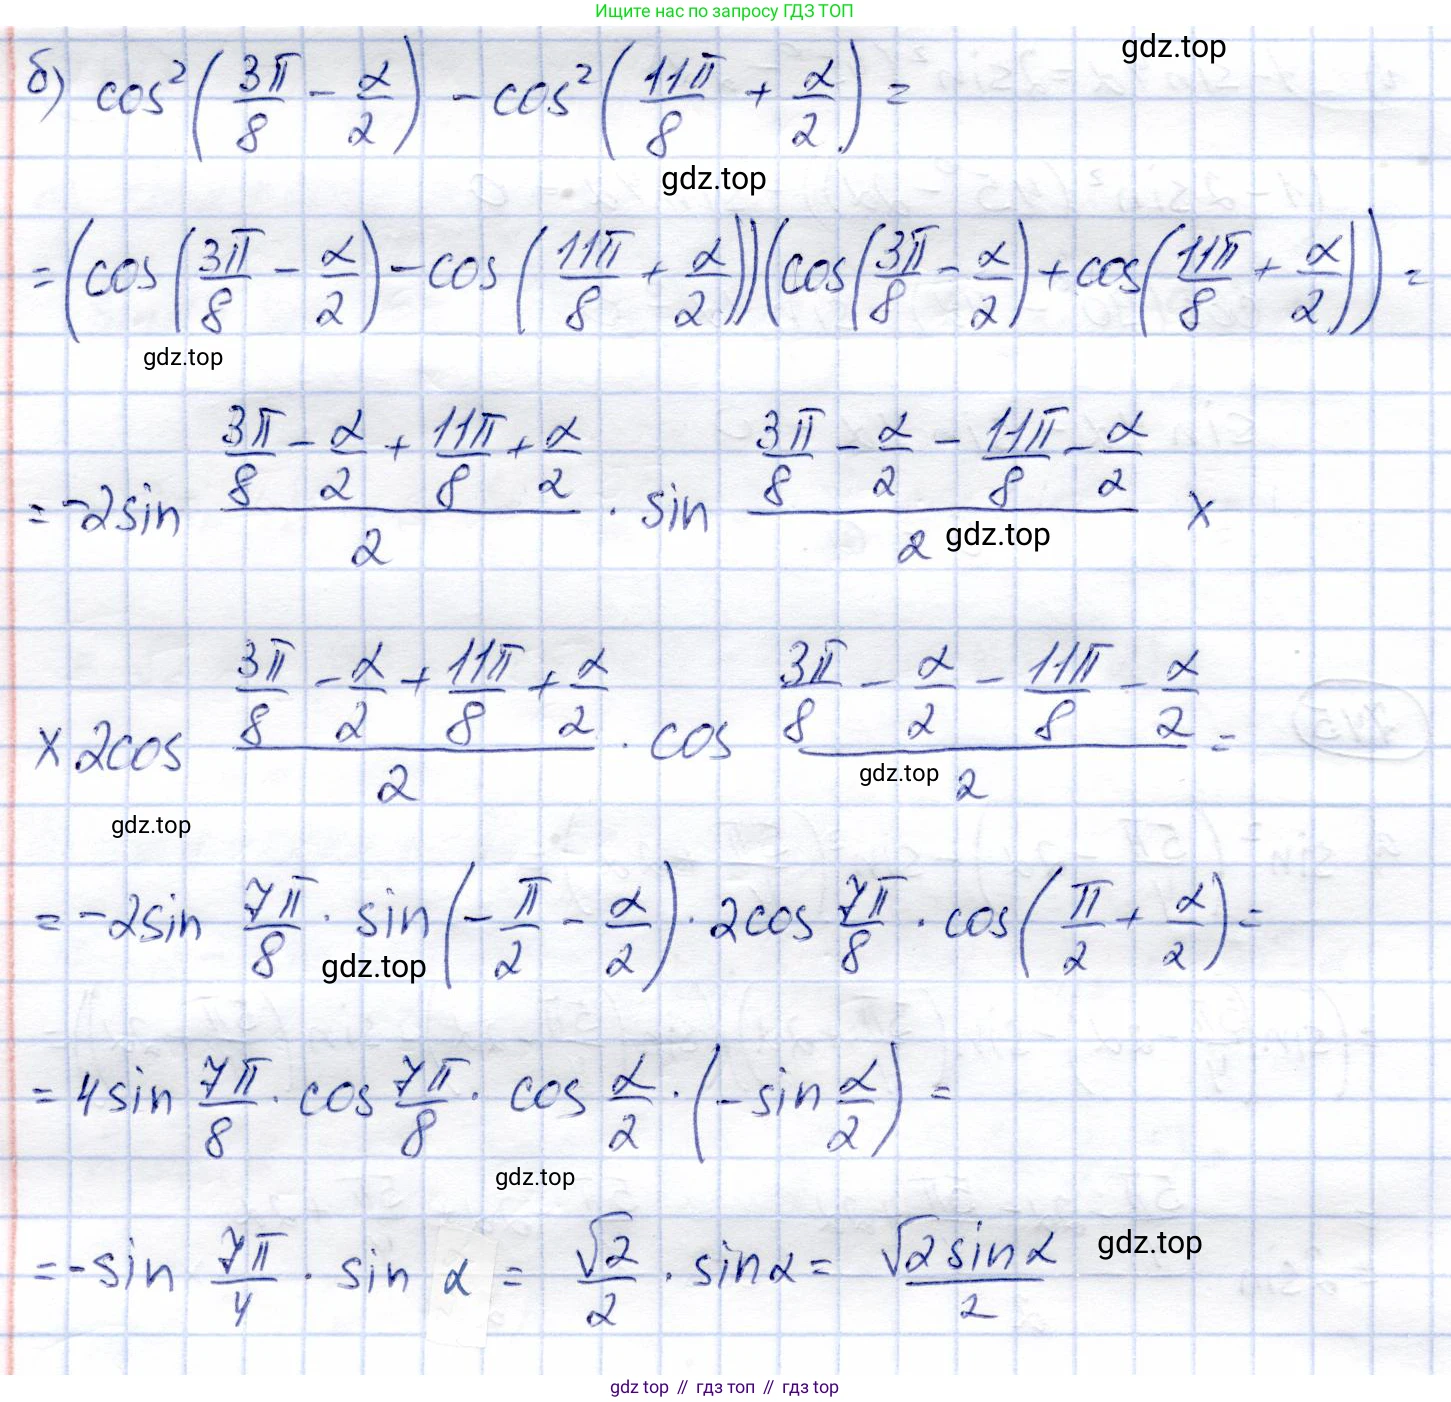 Ищите нас по запросу ГДЗ ТОП
gdz.top
б) cos²(3π/8 − α/2) − cos²(11π/8 + α/2) =
gdz.top
= (cos(3π/8 − α/2) − cos(11π/8 + α/2))(cos(3π/8 − α/2) + cos(11π/8 + α/2)) =
gdz.top
= −2sin (3π/8 − α/2 + 11π/8 + α/2)/2 · sin (3π/8 − α/2 − 11π/8 − α/2)/2 ×
gdz.top
× 2cos (3π/8 − α/2 + 11π/8 + α/2)/2 · cos (3π/8 − α/2 − 11π/8 − α/2)/2 =
gdz.top
gdz.top
= −2sin 7π/8 · sin(−π/2 − α/2) · 2cos 7π/8 · cos(π/2 + α/2) =
gdz.top
= 4sin 7π/8 · cos 7π/8 · cos α/2 · (−sin α/2) =
gdz.top
= −sin 7π/4 · sin α = √2/2 · sinα = √2 sinα/2
gdz.top
gdz top // гдз топ // гдз top